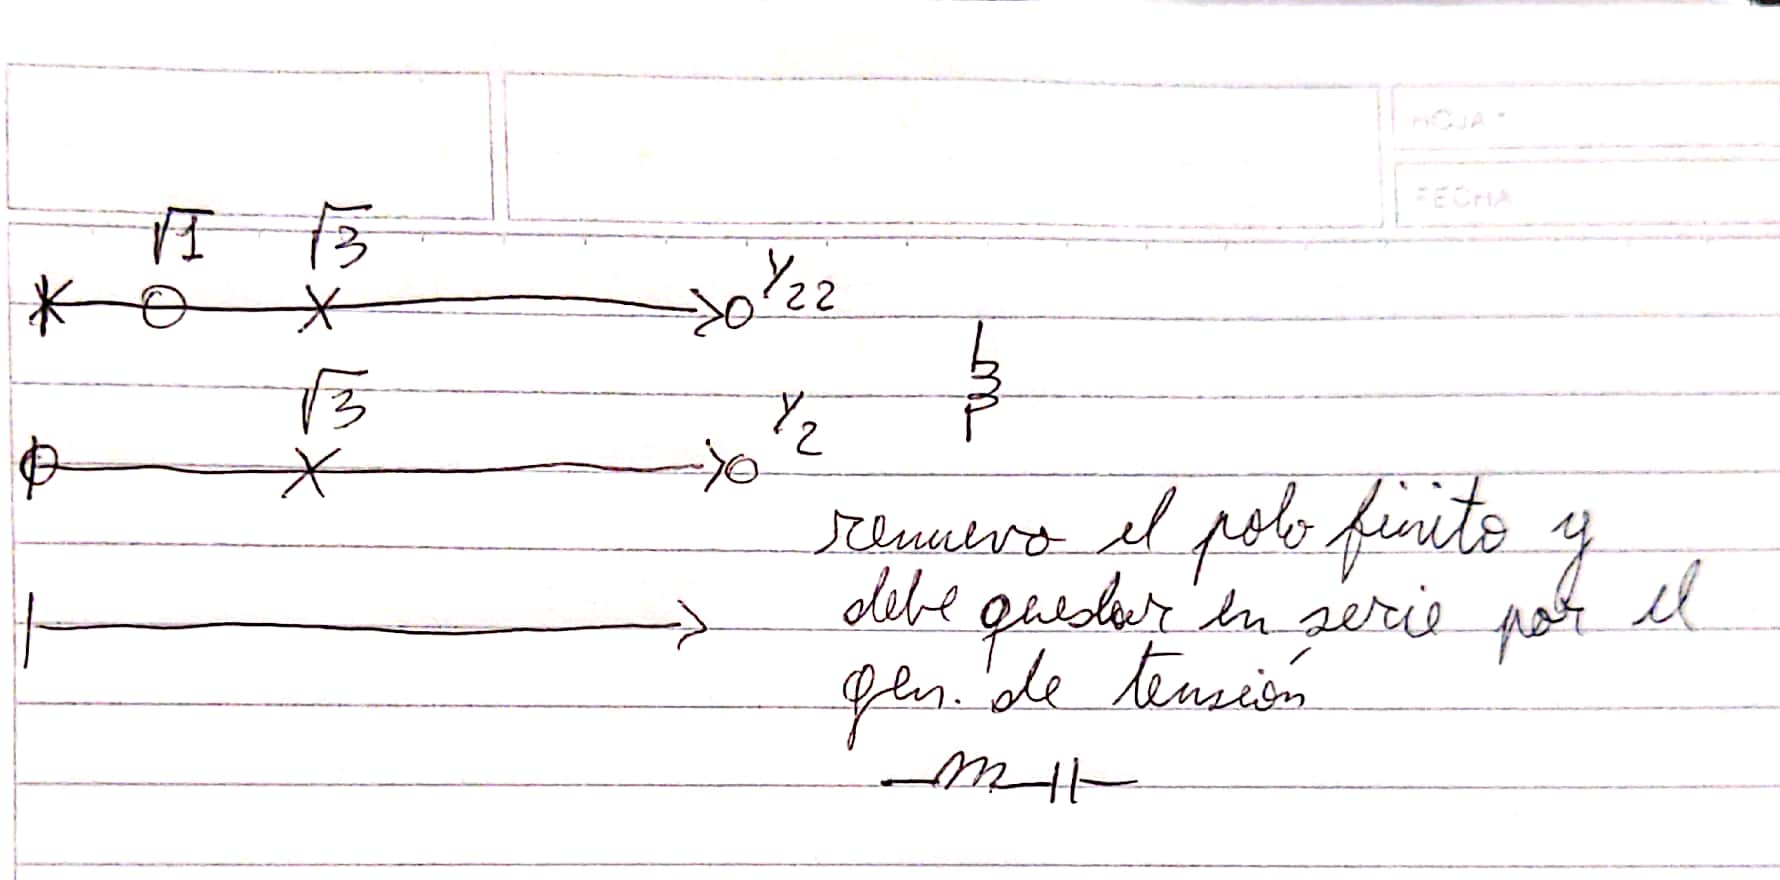 HOJA °
FECHA
√1 √3
Y22
√3
Y2
remuevo el polo finito y
debe quedar en serie por el
gen. de tensión